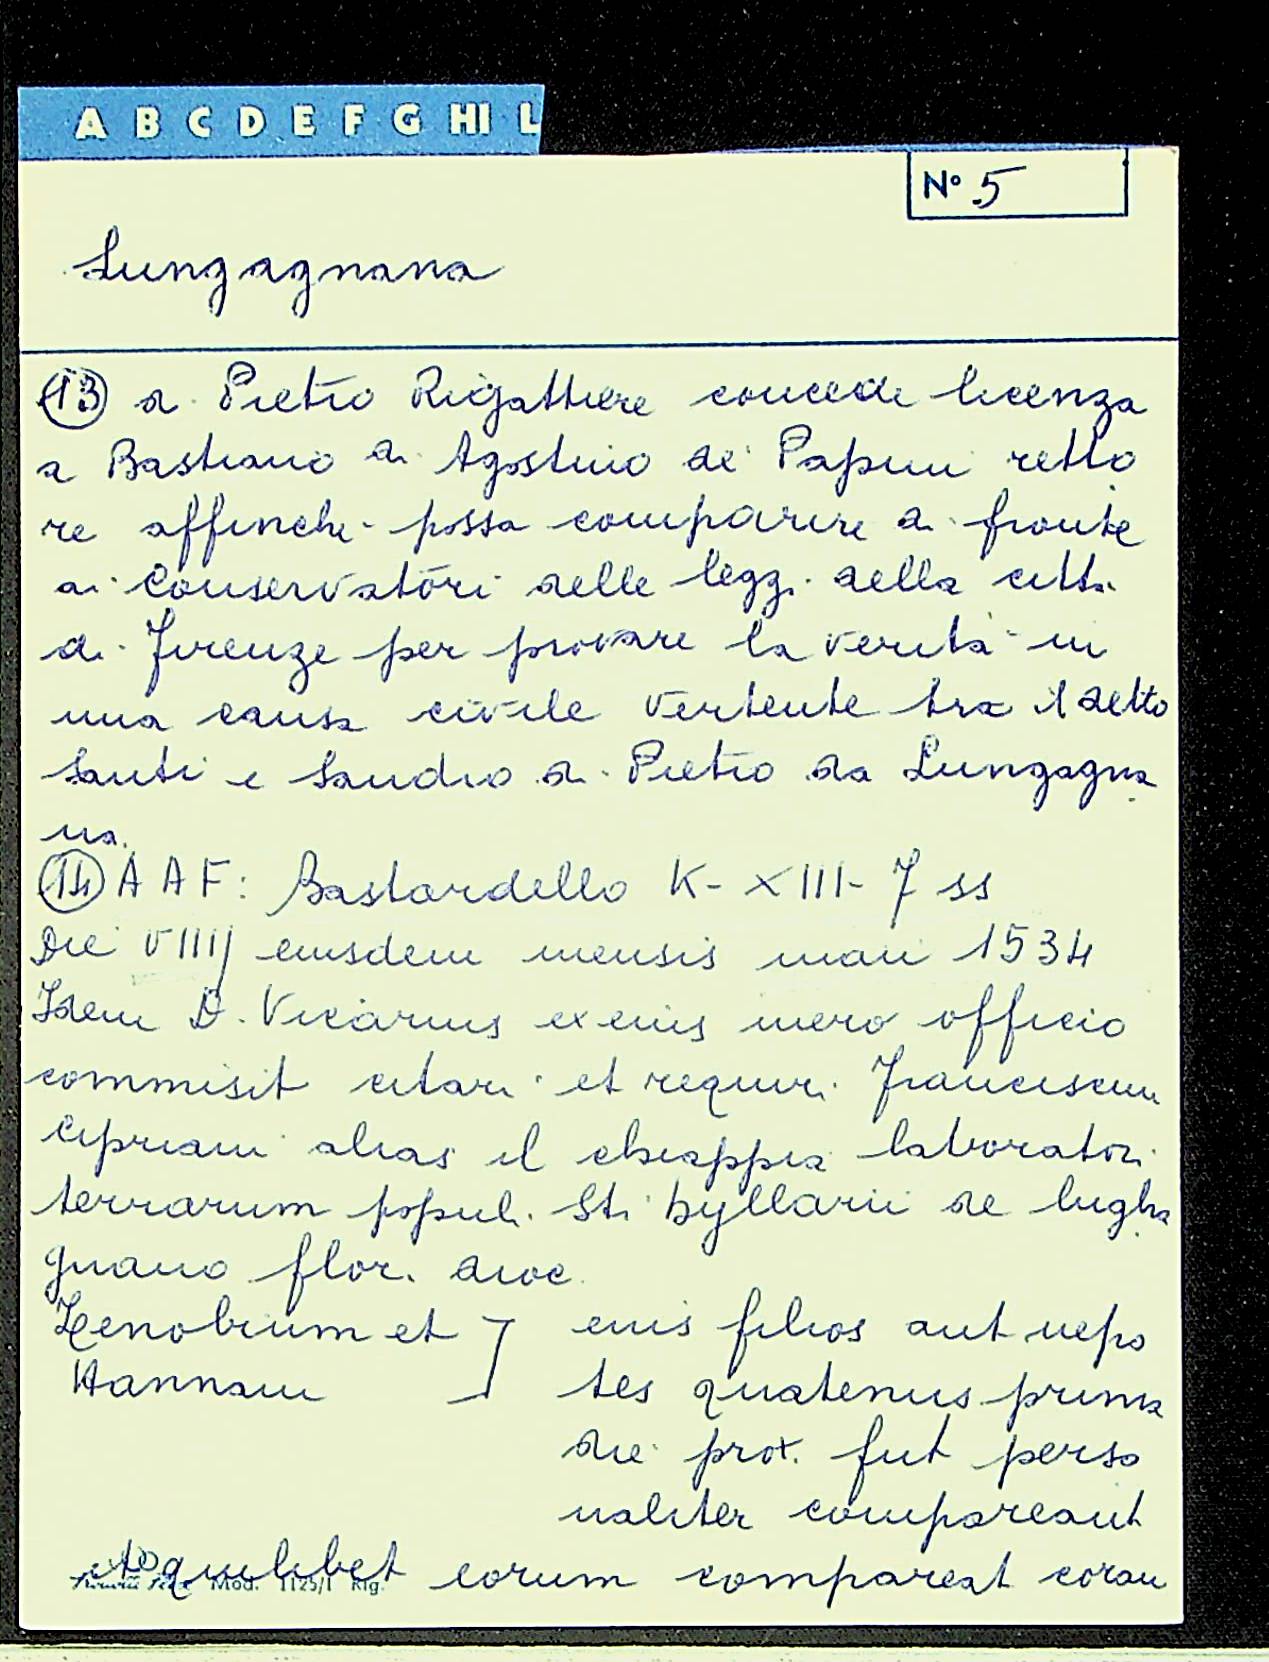 A B C D E F G HI L
N° 5
Lungagnana
13 di Pietro Rigattiere concede licenza
a Bastiano di Agostino de' Papini retto
re affinchè possa comparire di fronte
ai Conservatori delle leggi della città
di Firenze per provare la verità in
una causa civile vertente tra il detto
Santi e Sandro di Pietro da Lungagna
na.
14 A A F: Bastardello K-XIII-7 ss
Die VIIIJ eiusdem mensis maii 1534
Idem D. Vicarius ex eius mero officio
commisit citari et requiri Franciscum
Cipriani alias il chiappia laborator.
terrarum populi Sti hyllarii de lugha
gnano flor. dioc.
Zenobium et ] eius filios aut nepo
Nannam tes quatenus prima
die prox. fut perso
naliter compareant
et quilibet eorum compareat coram
Mod. 1125/1 Rig.